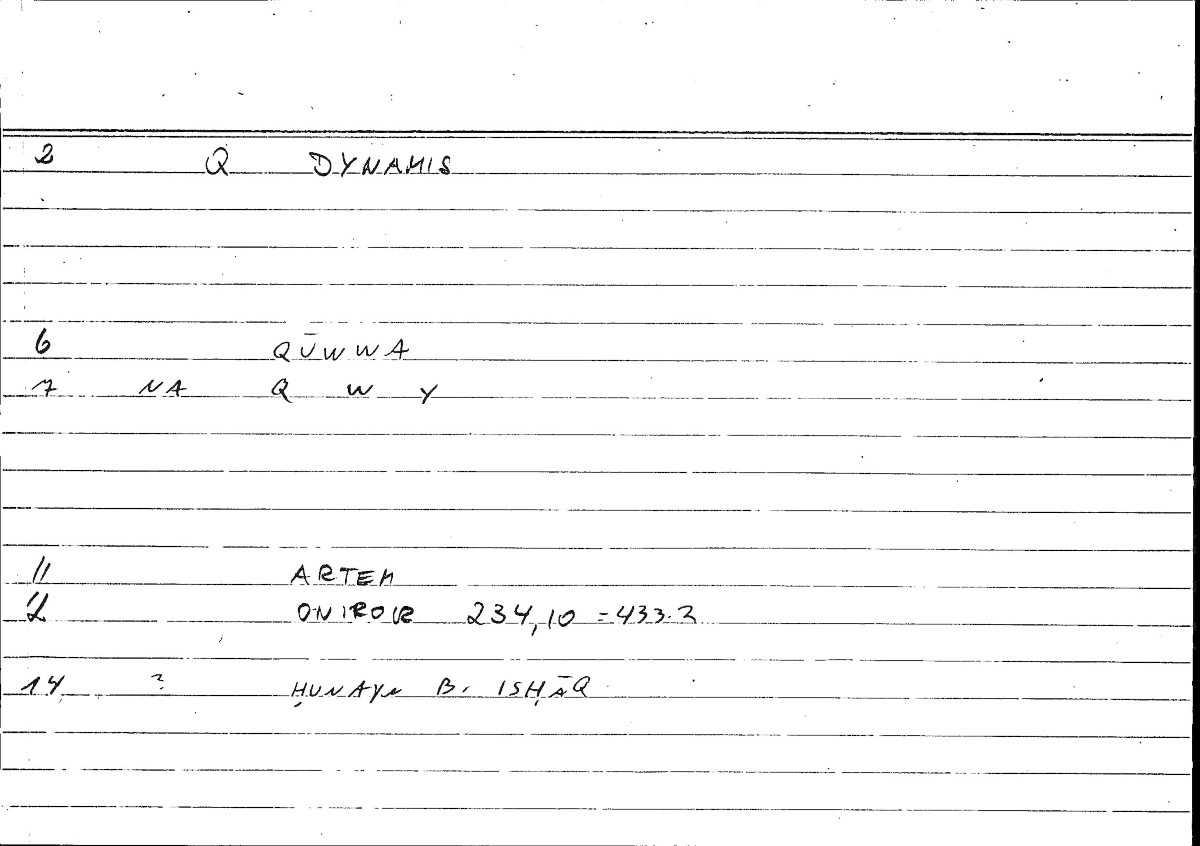 2 Q DYNAMIS
6 QŪWWA
7 NA Q W Y
11 ARTEM
12 ONIROK 234,10 = 433.2
14 ? ḤUNAYN B. ISḤĀQ